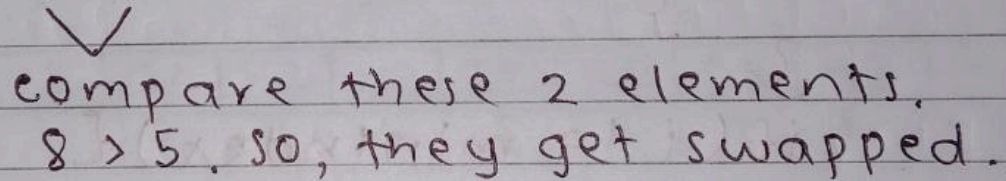 compare these 2 elements.
8 > 5. so, they get swapped.